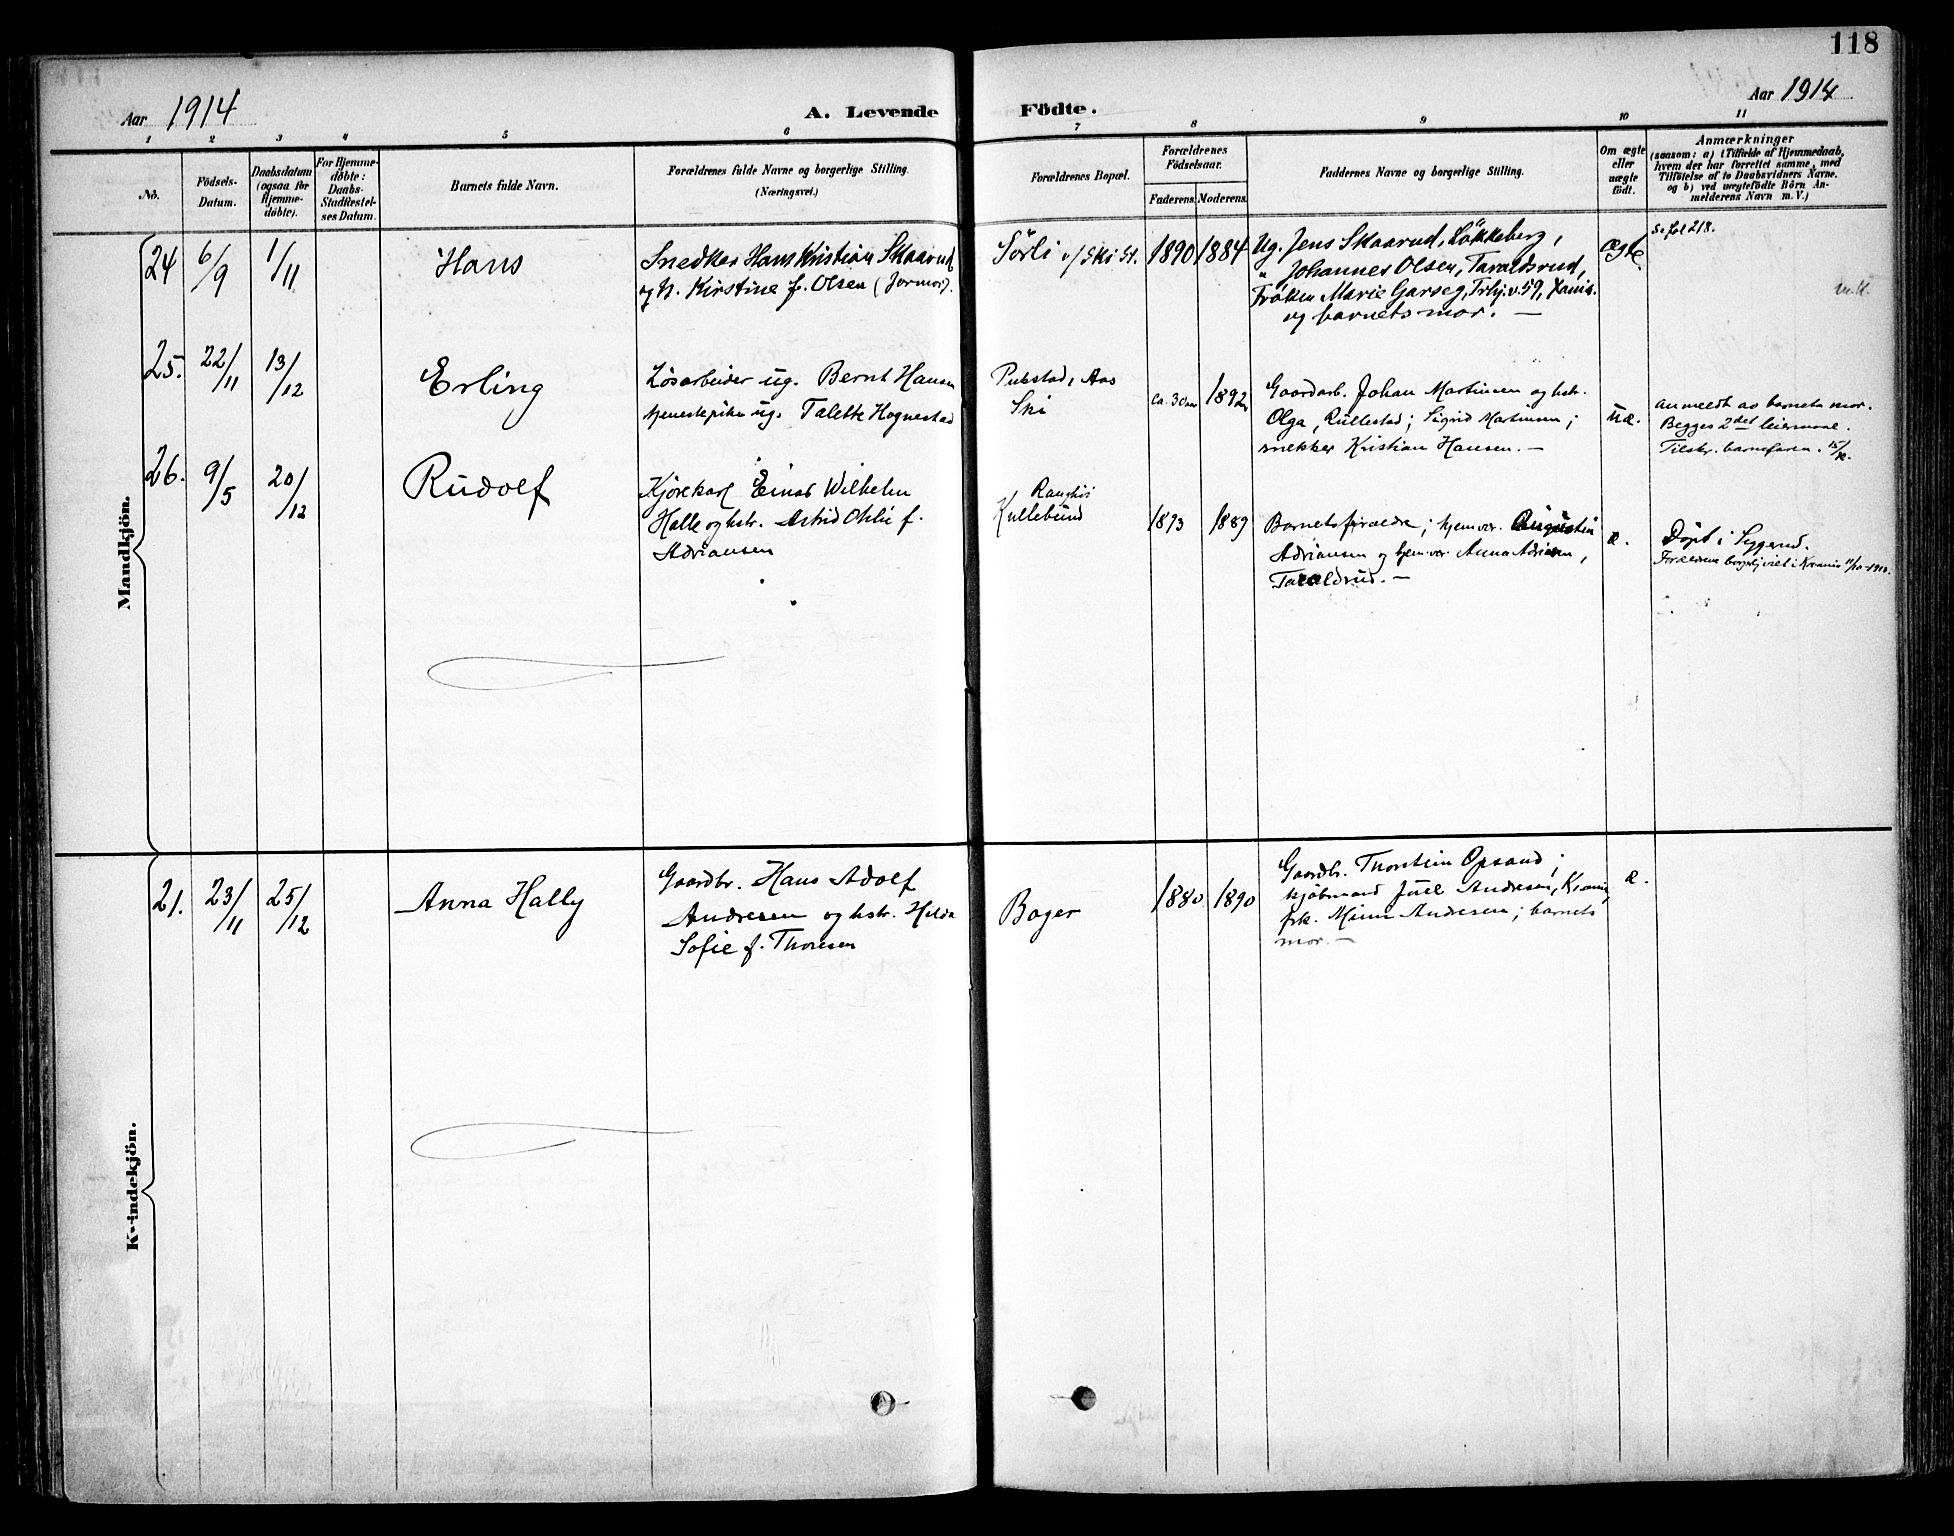 118
Aar 1914
A. Levende Födte.
Aar 1914
1 2 3 4 5 6 7 8 9 10 11
No.
Födsels-
Datum.
Daabsdatum
(ogsaa for
Hjemme-
döbte).
For Hjemme-
döbte:
Daabs-
Stadfæstel-
ses Datum.
Barnets fulde Navn.
Forældrenes fulde Navne og borgerlige Stilling.
(Næringsvei.)
Forældrenes Bopæl.
Forældrenes
Födselsaar.
Faderens. Moderens.
Faddernes Navne og borgerlige Stilling.
Om ægte
eller
uægte
födt.
Anmærkninger
(saasom: a) i Tilfælde af Hjemmedaab,
hvem der har forrettet samme, med
Tilföielse af to Daabsvidners Navne.
og b) ved uægtefödte Börn An-
melderens Navn m. V.)
Mandkjön.
24 6/9 1/11 Hans
Snedker Hans Kristian Skaarud
og h. Kirstine f. Olsen (Jormor).
Sörli v/Ski St.
1890 1884
Ug. Jens Skaarud, Lökkeberg,
" Johannes Olsen, Taraldsrud,
Fröken Marie Garseg, Trhj. v. 59, Xania.
og barnets mor. —
ægte.
Se fol 218.
25. 22/11 13/12 Erling
Lösarbeider ug. Bernt Hansen
tjenestepike ug. Talette Hognestad
Pubstad, Aas
Ski
ca. 30 aar 1892
Gaardarb. Johan Martinsen og hstr.
Olga, Rullestad; Sigrid Martinsen;
snekker Kristian Hansen. —
uæ.
Anmeldt av barnets mor.
Begges 2det leiermaal.
Tilskr. barnefaren. 15/12.
26. 9/5 20/12 Rudolf
Kjörekarl Einar Wilhelm
Halle og hstr. Astrid Otilie f.
Adriansen
Kullebund
1893 1889
Barnets forældre; hjemvær. Augustin
Adriansen og hjemvær. Anna Adriansen,
Taraldrud. —
æ.
Döpt i Syggerud.
Forældrene borgerlig viet i Krania 11/10-1913.
Kvindekjön.
21. 23/11 25/12 Anna Hally
Gaardbr. Hans Adolf
Andresen og hstr. Hilda
Sofie f. Thoresen
Bøger
1880 1890
Gaardbr. Thorstein Opsand;
kjöbmand Juel Andresen, Krania,
frk. Mimi Andresen; barnets
mor. —
æ.